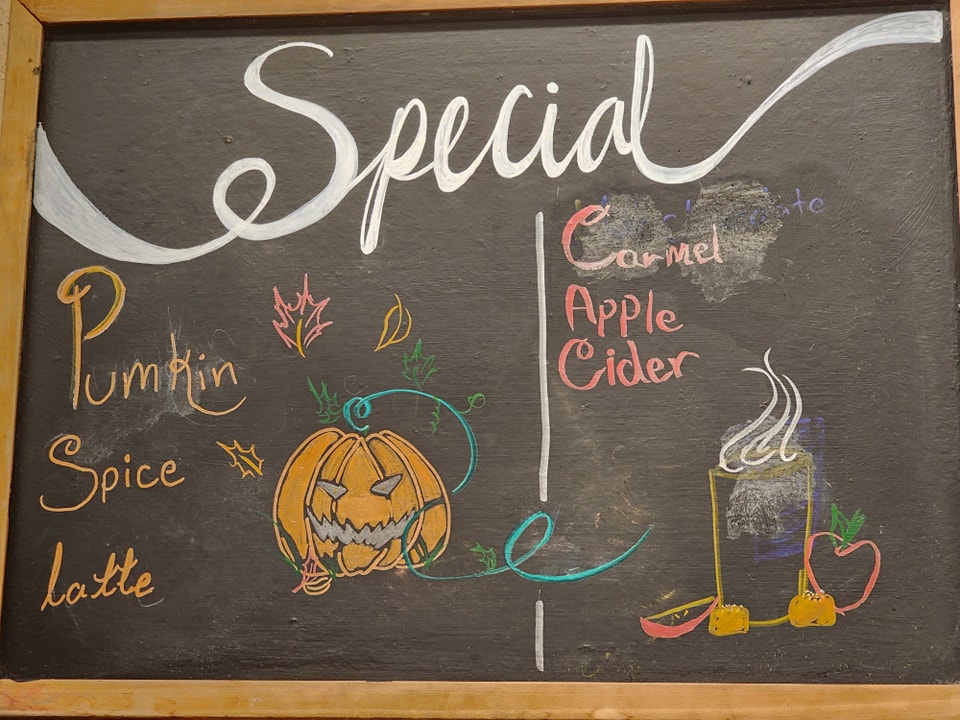 Special
Pumkin
Spice
Latte
Carmel
Apple
Cider